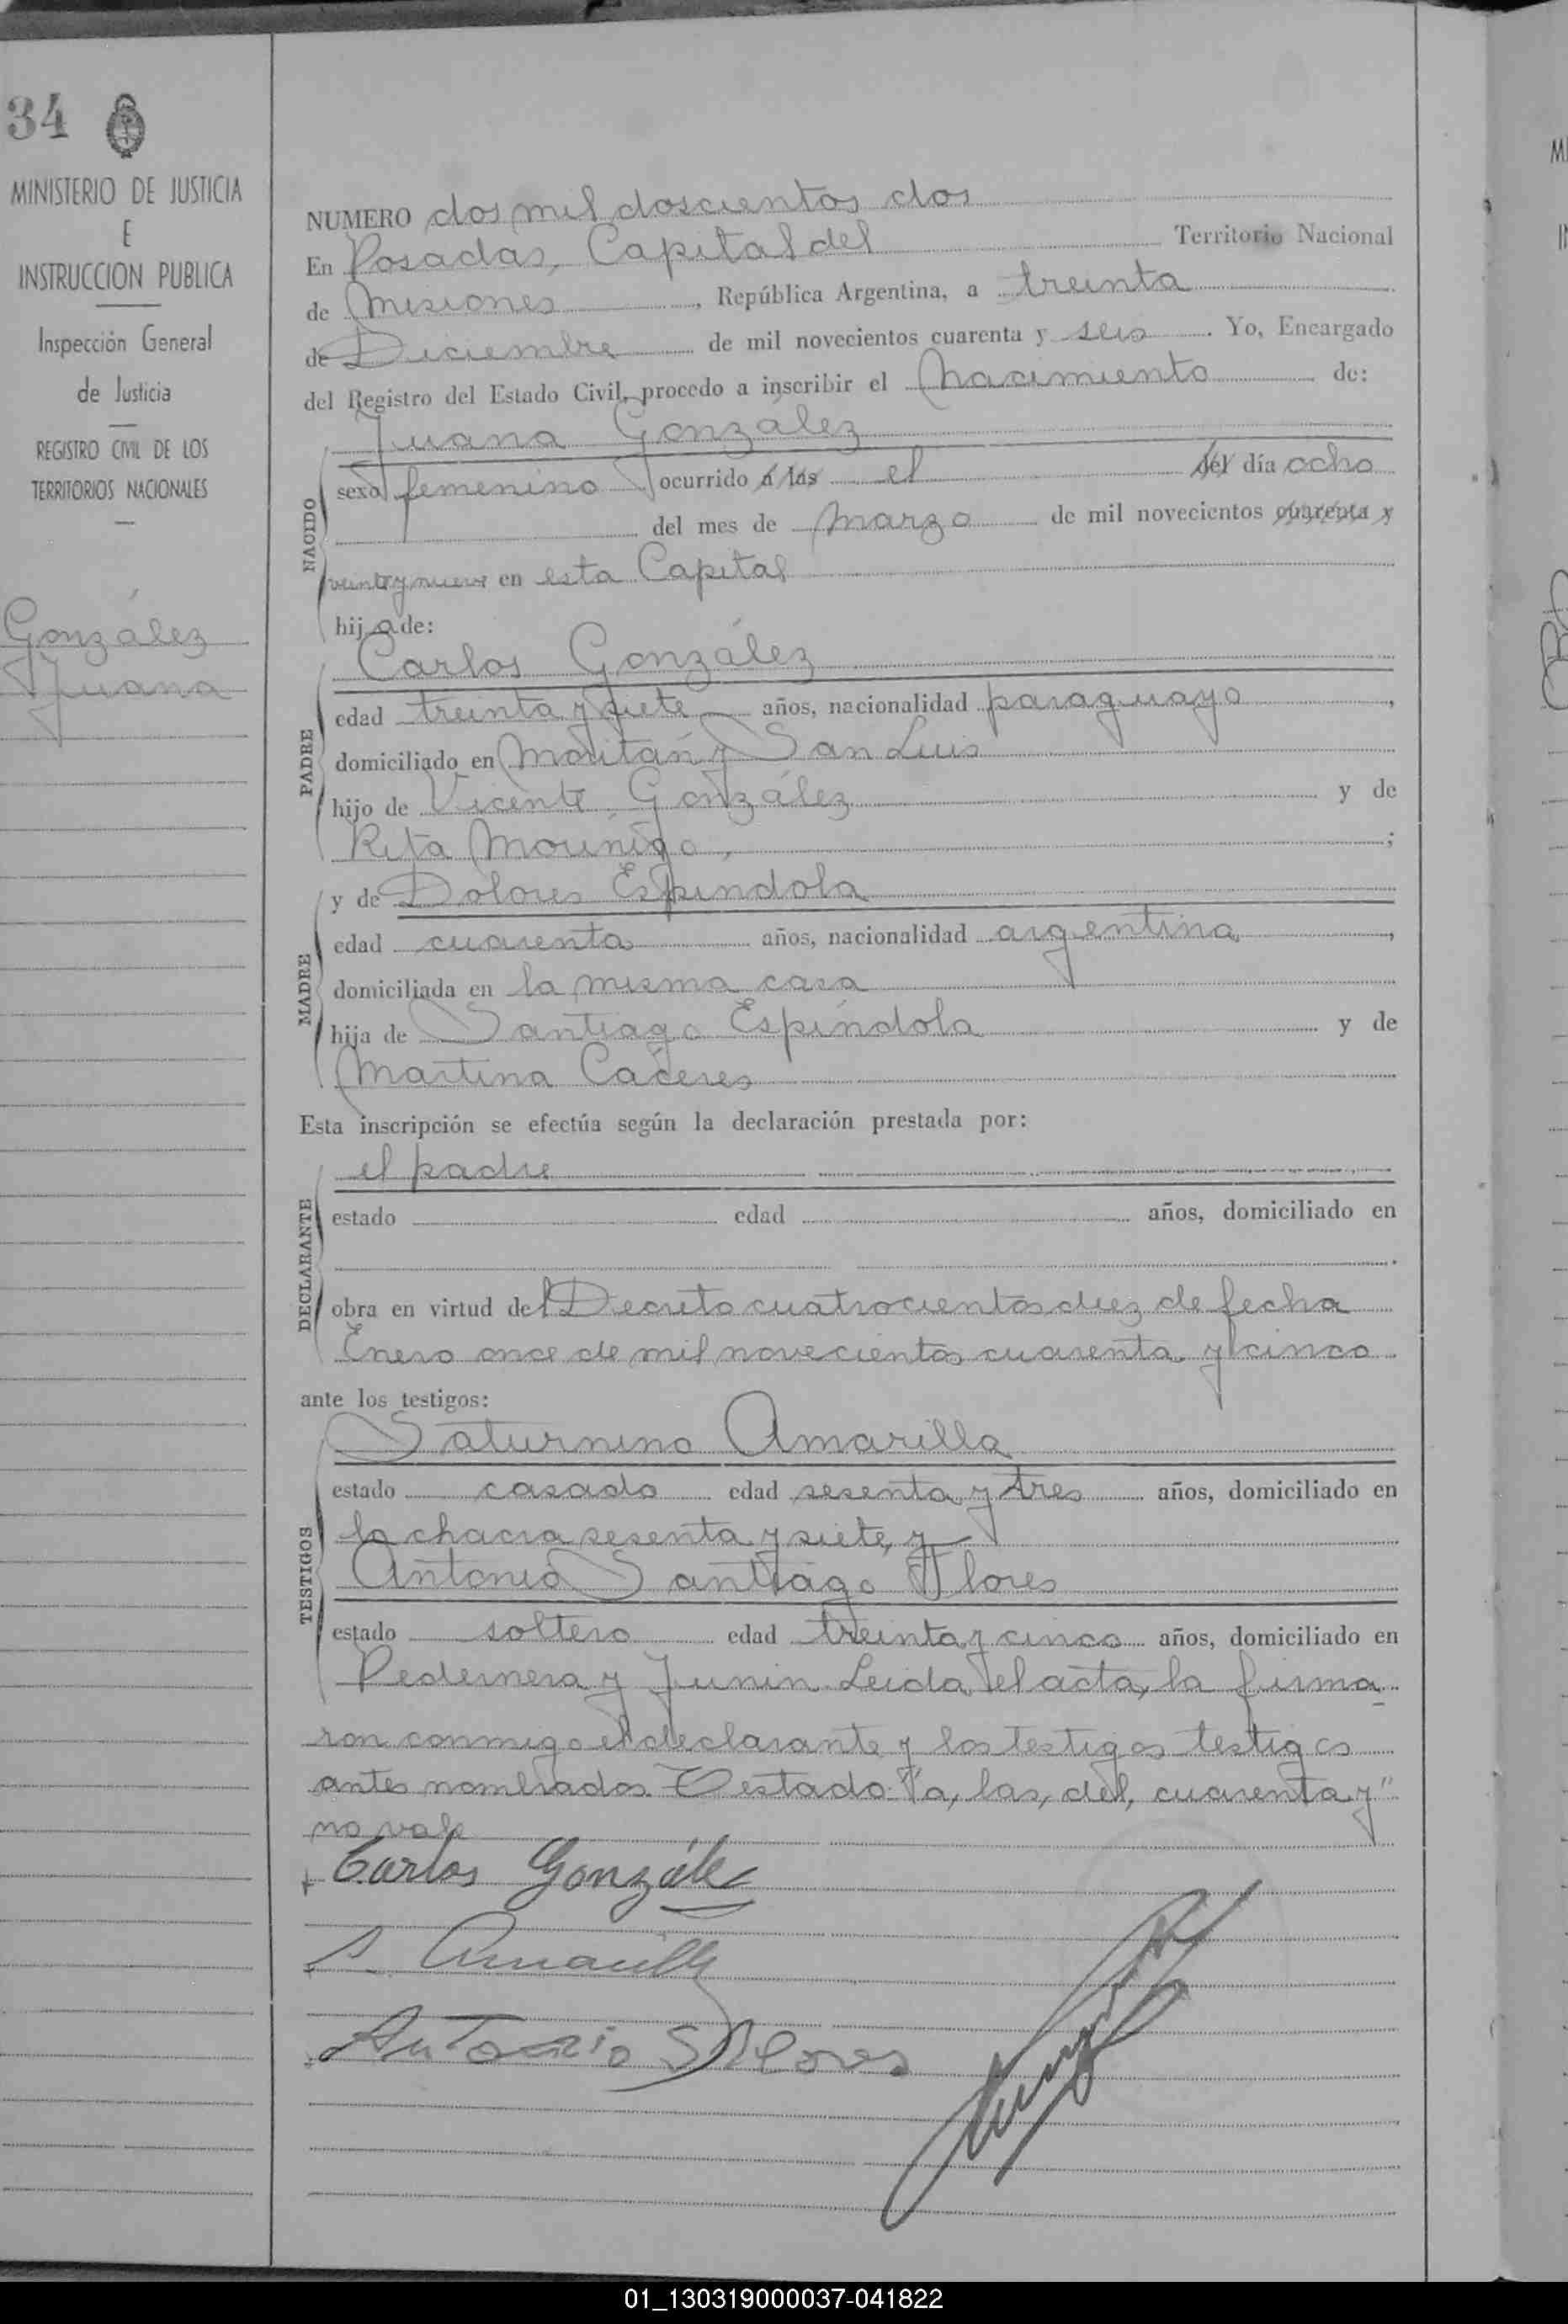 34
MINISTERIO DE JUSTICIA
E
INSTRUCCION PUBLICA
Inspección General
de Justicia
REGISTRO CIVIL DE LOS
TERRITORIOS NACIONALES
González
Juana
NUMERO dos mil doscientos dos
En Posadas, Capital del Territorio Nacional
de Misiones, República Argentina, a treinta
de Diciembre de mil novecientos cuarenta y seis. Yo, Encargado
del Registro del Estado Civil, procedo a inscribir el nacimiento de:
Juana González
NACIDO
sexo femenino ocurrido a las el del día ocho
del mes de marzo de mil novecientos cuarenta y
veinte y nueve en esta Capital
hija de:
PADRE
Carlos González
edad treinta y siete años, nacionalidad paraguayo,
domiciliado en Moritán y San Luis
hijo de Vicente González y de
Rita Mouriñigo,;
MADRE
y de Dolores Espíndola
edad cuarenta años, nacionalidad argentina,
domiciliada en la misma casa
hija de Santiago Espíndola y de
Martina Cáceres
Esta inscripción se efectúa según la declaración prestada por:
DECLARANTE
el padre
estado edad años, domiciliado en
obra en virtud del Decreto cuatrocientos diez de fecha
Enero once de mil novecientos cuarenta y cinco
ante los testigos:
TESTIGOS
Saturnino Amarilla
estado casado edad sesenta y tres años, domiciliado en
la chacra sesenta y siete, y
Antonio Santiago Flores
estado soltero edad treinta y cinco años, domiciliado en
Pedernera y Junin. Leida el acta, la firma-
ron conmigo el declarante y los testigos testigos
antes nombrados. Testado: "a, las, del, cuarenta y"
no vale
Carlos González
S. Amarilla
Antonio S Flores
01_130319000037-041822